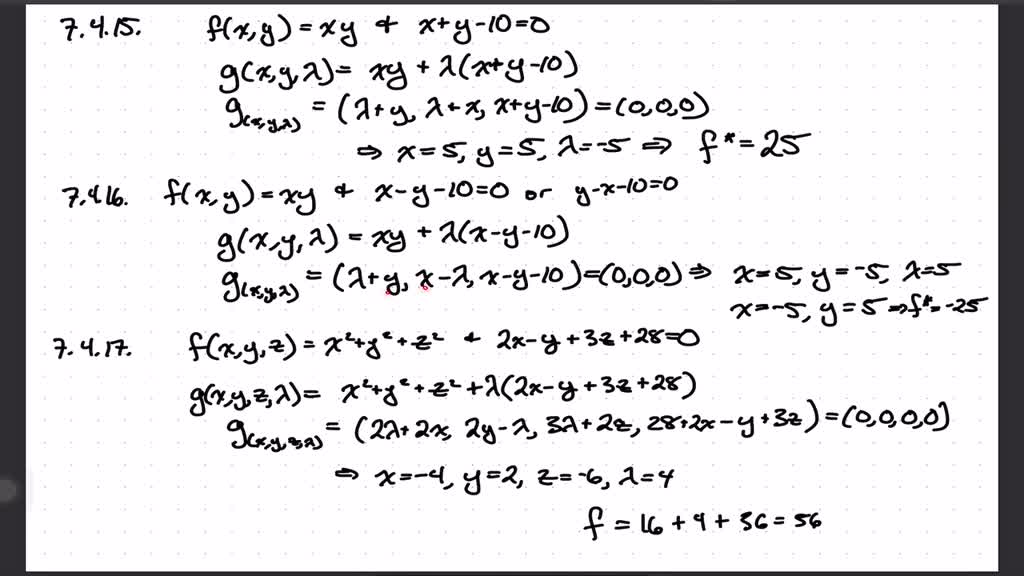 7.4.15. f(x,y) = xy & x+y-10=0
g(x,y,λ) = xy + λ(x+y-10)
g(x,y,λ) = (λ+y, λ+x, x+y-10) = (0,0,0)
⇒ x=5, y=5, λ=-5 ⇒ f* = 25
7.4.16. f(x,y) = xy & x-y-10=0 or y-x-10=0
g(x,y,λ) = xy + λ(x-y-10)
g(x,y,λ) = (λ+y, x-λ, x-y-10) = (0,0,0) ⇒ x=5, y=-5, λ=5
x=-5, y=5 ⇒ f* = -25
7.4.17. f(x,y,z) = x²+y²+z² & 2x-y+3z+28=0
g(x,y,z,λ) = x²+y²+z²+λ(2x-y+3z+28)
g(x,y,z,λ) = (2λ+2x, 2y-λ, 3λ+2z, 28+2x-y+3z) = (0,0,0,0)
⇒ x=-4, y=2, z=-6, λ=4
f = 16+4+36=56